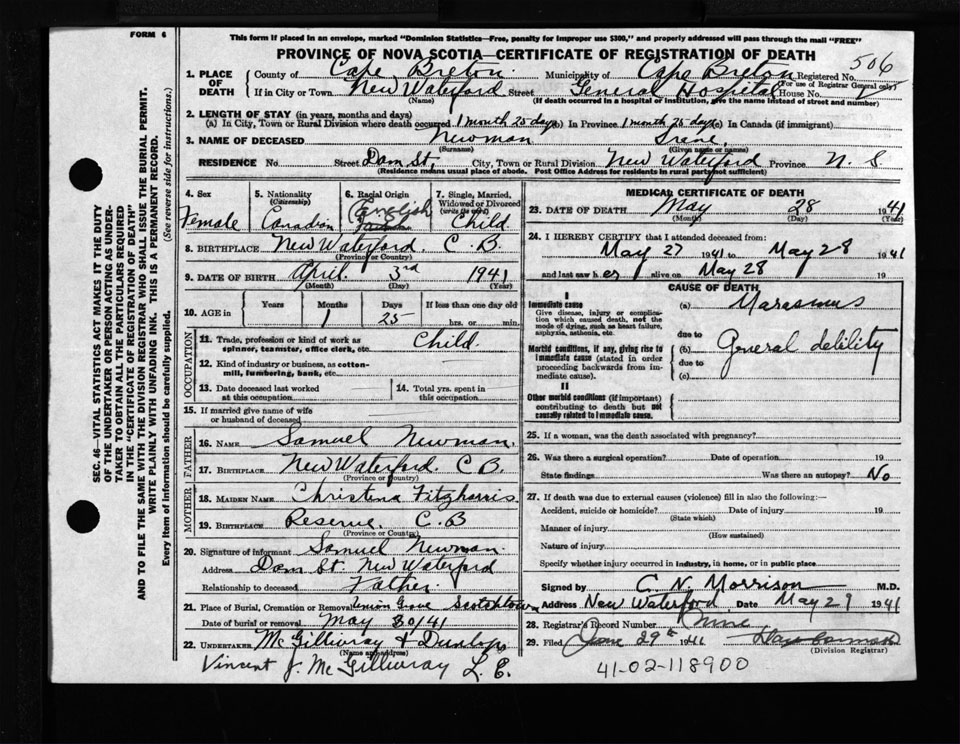 FORM 6
This form if placed in an envelope, marked "Dominion Statistics—Free, penalty for improper use $300," and properly addressed will pass through the mail "FREE"
PROVINCE OF NOVA SCOTIA—CERTIFICATE OF REGISTRATION OF DEATH
506
1. PLACE OF DEATH County of Cape Breton Municipality of Cape Breton Registered No.
(For use of Registrar General only)
If in City or Town New Waterford Street General Hospital House No.
(Name) (If death occurred in a hospital or institution, give the name instead of street and number)
2. LENGTH OF STAY (in years, months and days)
(a) In City, Town or Rural Division where death occurred 1 month 25 days (b) In Province 1 month 25 days (c) In Canada (if immigrant)
3. NAME OF DECEASED Newman Irene
(Surname) (Given name or names)
RESIDENCE No. Street Dam St. City, Town or Rural Division New Waterford Province N. S
(Residence means usual place of abode. Post Office Address for residents in rural parts not sufficient)
4. Sex Female
5. Nationality (Citizenship) Canadian
6. Racial Origin English
7. Single, Married, Widowed or Divorced (write the word) Child.
8. BIRTHPLACE New Waterford. C. B.
(Province or Country)
9. DATE OF BIRTH April. 3rd 1941
(Month) (Day) (Year)
10. AGE in Years Months 1 Days 25 If less than one day old hrs. or min.
OCCUPATION
11. Trade, profession or kind of work as spinner, teamster, office clerk, etc. Child.
12. Kind of industry or business, as cotton-mill, lumbering, bank, etc.
13. Date deceased last worked at this occupation
14. Total yrs. spent in this occupation
15. If married give name of wife or husband of deceased
FATHER
16. NAME Samuel Newman.
17. BIRTHPLACE New Waterford. C B.
(Province or Country)
MOTHER
18. MAIDEN NAME Christena Fitzharris
19. BIRTHPLACE Reserve. C. B
(Province or Country)
20. Signature of informant Samuel Newman
Address Dam St. New Waterford
Relationship to deceased Father.
21. Place of Burial, Cremation or Removal Union Grove Scotchtown
Date of burial or removal May 30/41
22. UNDERTAKER McGillivray & Dunlop
(Name and address)
Vincent J. McGillivray L. E.
MEDICAL CERTIFICATE OF DEATH
23. DATE OF DEATH May 28 1941
(Month) (Day) (Year)
24. I HEREBY CERTIFY that I attended deceased from:
May 27 1941 to May 28 1941
and last saw her alive on May 28 19
CAUSE OF DEATH
I
Immediate cause
Give disease, injury or complication which caused death, not the mode of dying, such as heart failure, asphyxia, asthenia, etc.
(a) Marasmus
due to
Morbid conditions, if any, giving rise to immediate cause (stated in order proceeding backwards from immediate cause).
(b) General debility
due to
(c)
II
Other morbid conditions (if important) contributing to death but not causally related to immediate cause.
25. If a woman, was the death associated with pregnancy?
26. Was there a surgical operation? Date of operation 19
State findings Was there an autopsy? No
27. If death was due to external causes (violence) fill in also the following:—
Accident, suicide or homicide? Date of injury 19
(State which)
Manner of injury
(How sustained)
Nature of injury
Specify whether injury occurred in industry, in home, or in public place
Signed by C. N. Morrison M.D.
Address New Waterford. Date May 29 1941
28. Registrar's Record Number Nine
29. Filed June 29th 1941
(Division Registrar)
41-02-118900
SEC. 46—VITAL STATISTICS ACT MAKES IT THE DUTY
OF THE UNDERTAKER OR PERSON ACTING AS UNDER-
TAKER TO OBTAIN ALL THE PARTICULARS REQUIRED
IN THE "CERTIFICATE OF REGISTRATION OF DEATH"
AND TO FILE THE SAME WITH THE DIVISION REGISTRAR WHO SHALL ISSUE THE BURIAL PERMIT.
WRITE PLAINLY WITH UNFADING INK. THIS IS A PERMANENT RECORD.
Every item of information should be carefully supplied. (See reverse side for instructions.)